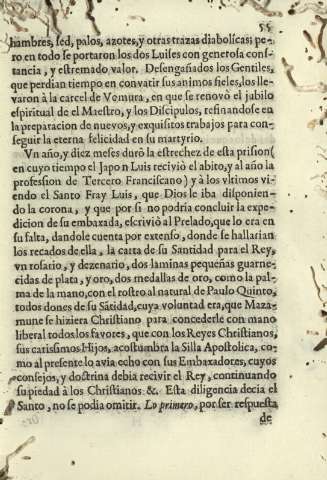 55
hambres, sed, palos, azotes, y otras trazas diabolicas; pe-
ro en todo se portaron los dos Luises con generosa cons-
tancia, y estremado valor. Desengañados los Gentiles,
que perdian tiempo en convatir sus animos fieles, los lle-
varon à la carcel de Vomura, en que se renovò el jubilo
espiritual de el Maestro, y los Discipulos, refinandose en
la preparacion de nuevos, y exquisitos trabajos para con-
seguir la eterna felicidad en su martyrio.
Vn año, y diez meses durô la estrechez de esta prision (
en cuyo tiempo el Japon Luis recivió el abito, y al año la
profesion de Tercero Franciscano) y à los vltimos vi-
endo el Santo Fray Luis, que Dios le iba disponien-
do la corona, y que por si no podria concluir la expe-
dicion de su embaxada, escrivió al Prelado, que lo era en
su falta, dandole cuenta por extenso, donde se hallarian
los recados de ella, la carta de su Santidad para el Rey,
vn rosario, y dezenario, dos laminas pequeñas guarne-
cidas de plata, y oro, dos medallas de oro, como la pal-
ma de la mano, con el rostro al natural de Paulo Quinto,
todos dones de su Sātidad, cuya voluntad era, que Maza-
mune se hiziera Christiano para concederle con mano
liberal todos los favores, que con los Reyes Christianos,
sus carissimos Hijos, acostumbra la Silla Apostolica, co-
mo al presente lo avia echo con sus Embaxadores, cuyos
consejos, y doctrina debia recivir el Rey, continuando
su piedad à los Christianos &. Esta diligencia decia el
Santo, no se podia omitir. Lo primero, por ser respuesta
de